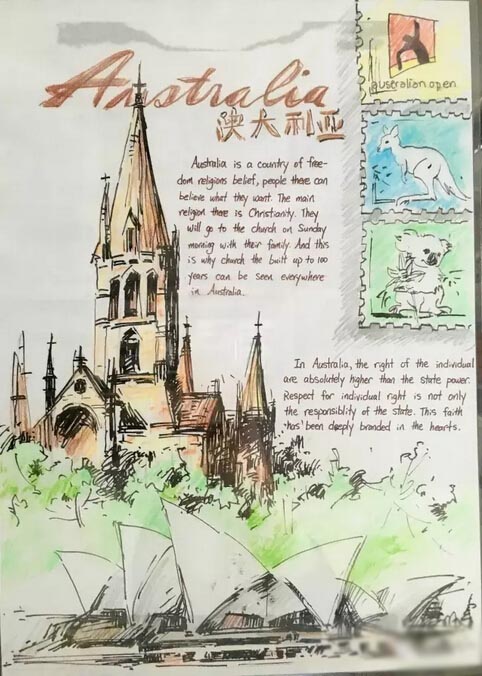 Australia
澳大利亚
auseralian open
Australia is a country of free-
dom religions belief, people there can
believe what they want. The main
religion there is Christianity. They
will go to the church on Sunday
morning with their family. And this
is why church the built up to 100
years can be seen everywhere
in Australia.
In Australia, the right of the individual
are absolutely higher than the state power.
Respect for individual right is not only
the responsiblity of the state. This faith
has been deeply branded in the hearts.